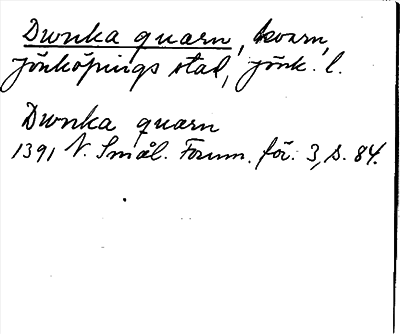 Dwnka quarn, kvarn,
Jönköpings stad, Jönk. l.
Dwnka quarn
1391 N. Smål. Fornm. för. 3, s. 84.